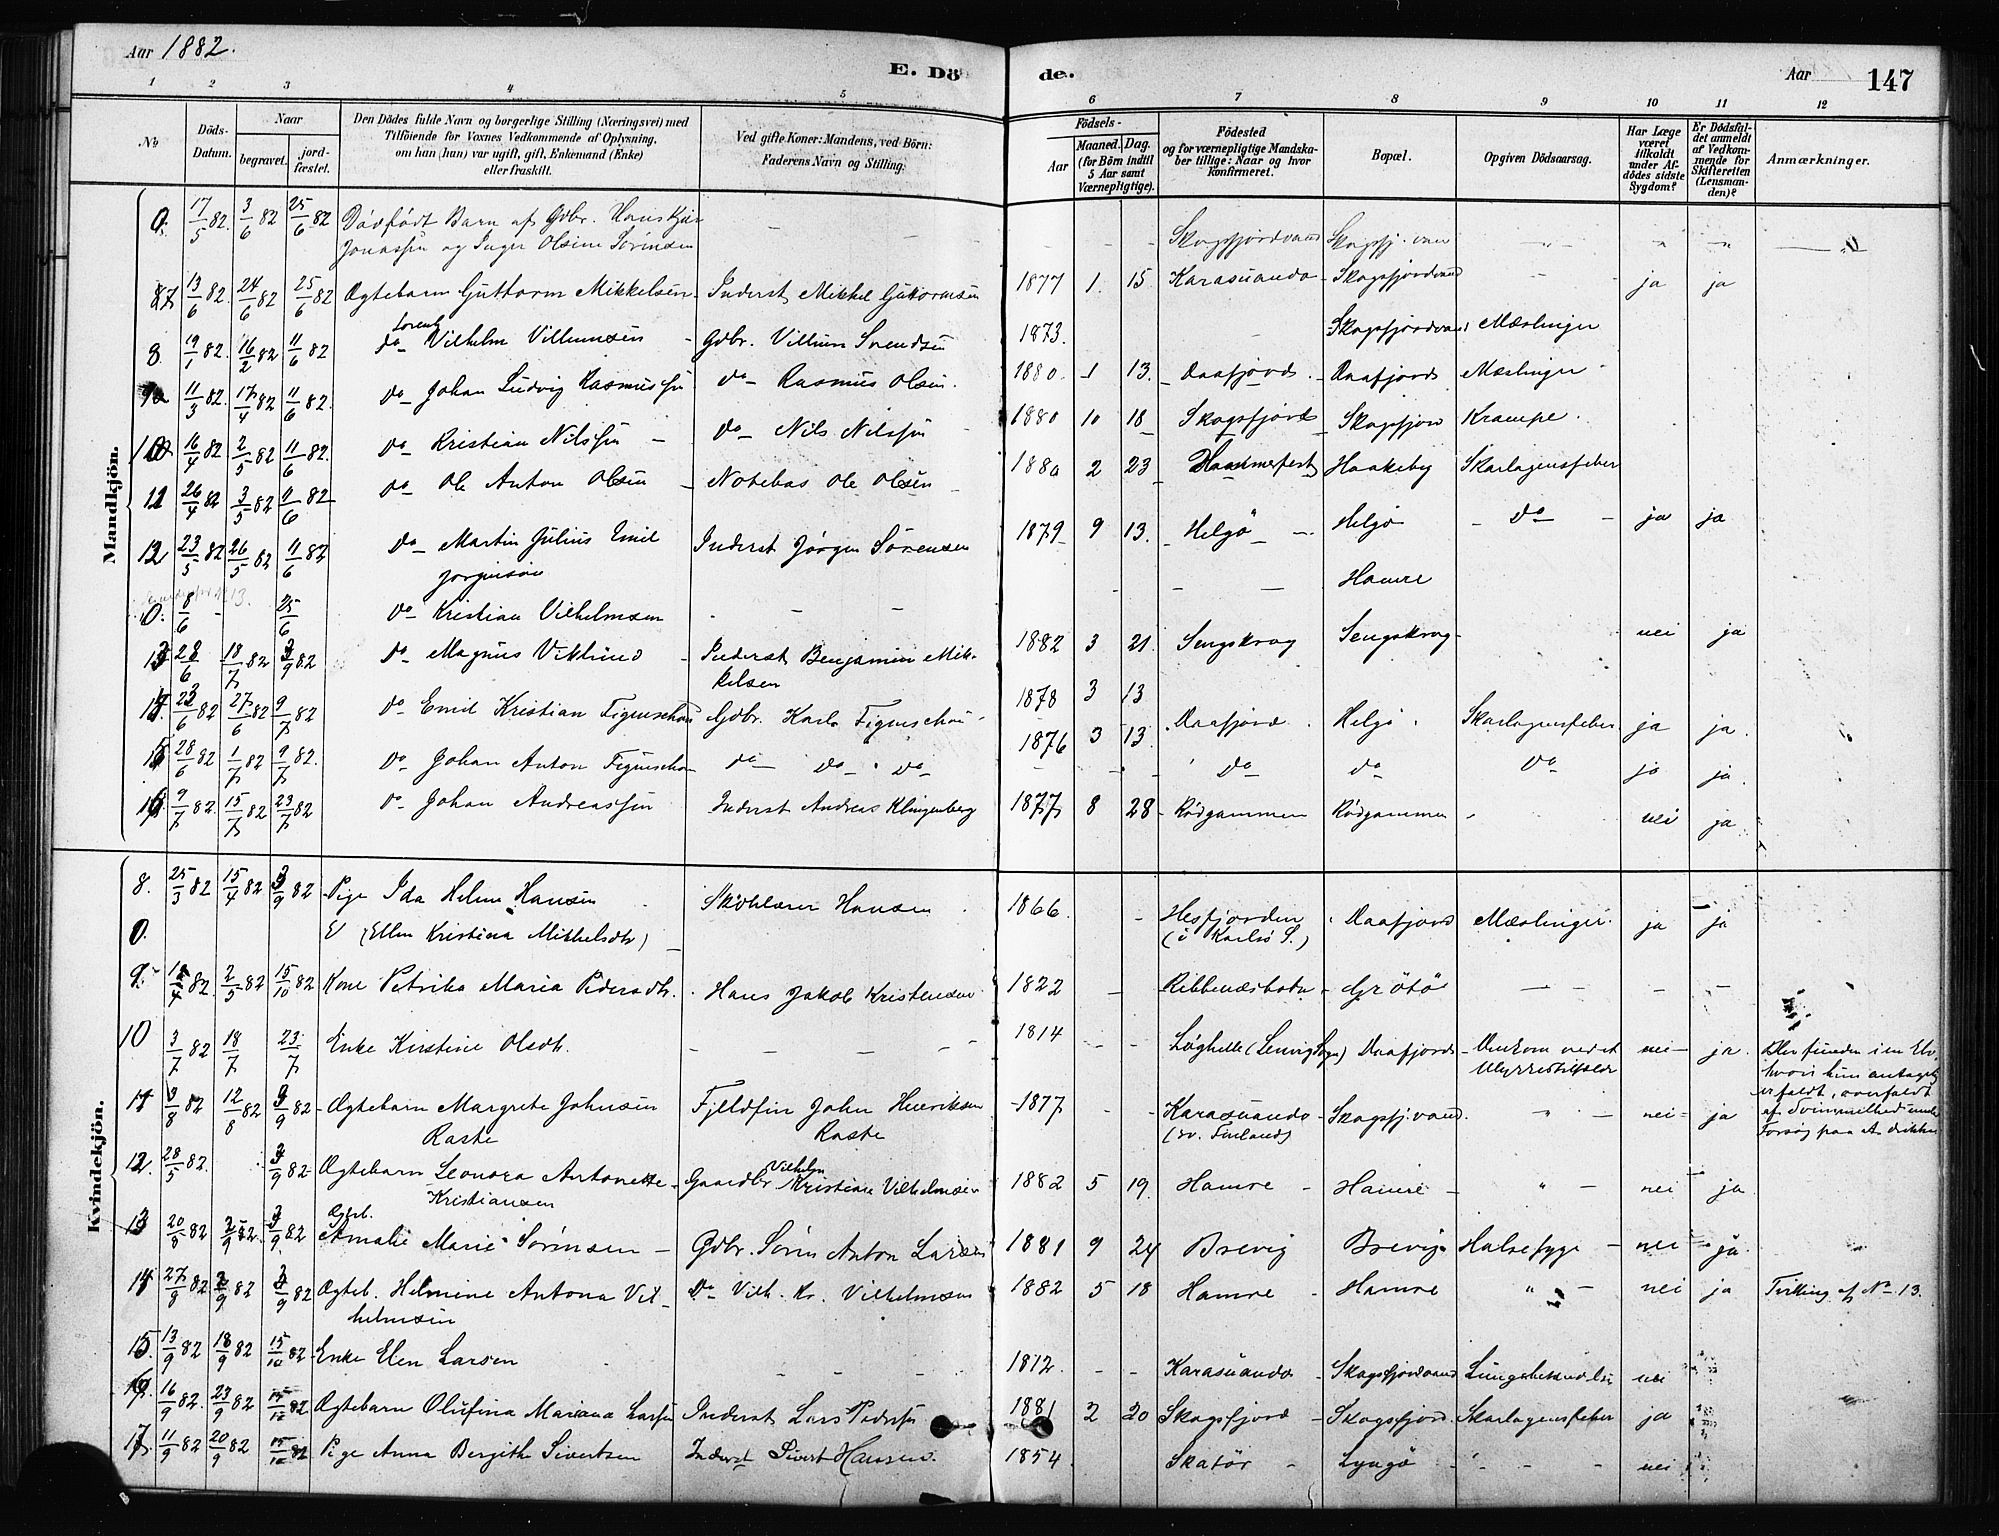 Aar 1882.
E. Dö de.
Aar
147
1 2 3 4 5 6 7 8 9 10 11 12
No
Döds-Datum.
Naar
begravet.
jord-fæstet.
Den Dödes fulde Navn og borgerlige Stilling (Næringsvei) med
Tilföiende for Voxnes Vedkommende af Oplysning,
om han (hun) var ugift, gift, Enkemand (Enke)
eller fraskilt.
Ved gifte Koner: Mandens, ved Börn:
Faderens Navn og Stilling.
Födsels-
Aar
Maaned. Dag.
(for Börn indtil
5 Aar samt
Værnepligtige).
Födested
og for værnepligtige Mandska-
ber tillige: Naar og hvor
konfirmeret.
Bopæl.
Opgiven Dödsaarsag.
Har Læge
været
tilkaldt
under Af-
dödes sidste
Sygdom?
Er Dödsfal-
det anmeldt
af Vedkom-
mende for
Skifteretten
(Lensman-
den)?
Anmærkninger.
Mandkjön.
0. 17/5 82. 3/6 82 25/6 82 Dödfödt Barn af Gdbr. Hans
Jonassen og Inger Olsine Sörensen - - Skogsfjordvand
7 13/6 82. 24/6 82 25/6 82 Ægtebarn Guttorm Mikkelsen Inderst Mikkel Guttormsen 1877 1. 15. Karasuando Skogsfjordvand - ja ja
8 19/1 82. 16/2 82 11/6 82 do Lorentz Vilhelm Villumsen Gdbr. Villum Svendsen 1873. - Skogsfjordvand Mæslinger
9 11/3 82. 17/4 82 11/6 82. do Johan Ludvig Rasmussen do Rasmus Olsen. 1880 1 13. Daafjord Daafjord Mæslinger
10 16/4 82 2/5 82 11/6 82. do Kristian Nilssen do Nils Nilssen 1880 10 18 Skogsfjord Skogsfjord Krampe.
11 26/4 82 3/5 82 11/6 82 do Ole Anton Olsen Notebas Ole Olsen 1880 2 23 Hammerfest Haakeby Skarlagensfeber
12 23/5 82 26/5 82 11/6 82 do Martin Julius Emil
Jörgensen Inderst Jörgen Sörensen 1879 9 13. Helgö Helgö do ja ja
0. 8/6 - 25/6 do Kristian Vilhelmsen - - - Hamre
13 28/6 18/7 82 3/9 82 do Magnus Viklund Inderst Benjamin Mik-
kelsen 1882 3 21. Sengskrog Sengskrog nei ja
14 23/6 82 27/6 82 9/7 82 do Emil Kristian Figenschau Gdbr. Karl Figenschau 1878 3 13 Daafjord Helgö Skarlagensfeber ja ja
15 28/6 82 1/7 82 9/7 82. do Johan Anton Figenschau do do do 1876 3 13. do do do ja ja.
16 9/7 82. 15/7 82 23/7 82 do Johan Andreassen Inderst Andreas Klingenberg 1877 8 28 Rödgammen Rödgammen nei ja
Kvindekjön.
8. 25/3 82 15/4 82 3/9 82 Pige Ida Heline Hansen Hansen 1866. - Hesfjorden
(i Karlsö S.) Daafjord Mæslinger ja ja
0. (Ellen Kristina Mikkelsdtr)
9. 82. 2/5 82 15/10 82 Kone Petrika Maria Pedersdtr. Hans Jakob Kristensen 1822 - Ribbenæsbotn Grötö - - -
10 3/7 82 18/7 23/7 Enke Kirstine Olsdtr. - - - - 1814 - - Löghelle (Lenvig Sogn) Daafjord Omkom ved et
Ulykkestilfælde nei ja. Blev funden i en Elv,
hvori hun antagelig
er faldt, overfaldt
af Svimmelhed under
Forsög paa at drikke
11 9/8 82 12/8 82 3/9 82 Ægtebarn Margrete Johnsen
Raste Fjeldfin John Henriksen
Raste 1877 - - Karasuando
(sv. Finland) Skogsfj.vand. " - nei ja
12. 28/5 82. 3/9 82 Ægtebarn Leonora Antonette
Kristiansen Gaardbr. Vilhelm Kristian Vilhelmsen 1882 5 19. Hamre Hamre " nei ja
13 20/8 82 3/9 82. 3/9 82 Ægteb.
Amalie Marie Sörensen Gdbr. Sörен Anton Larsen 1881 9 24 Brevig Brevig Halsesyge nei ja.
14 27/8 82 3/9 82 3/9 82 Ægteb. Helmine Antona Vil-
helmsen Do Vilh. Kr. Vilhelmsen 1882 5 18 Hamre Hamre " nei ja Tvilling af No 13.
15. 13/9 82 18/9 82 15/10 82 Enke Elen Larsen - - 1812. - - Karasuando Skogsfjordvand Lungebetændelse nei
16. 16/9 82. 23/9 82 15/10 82 Ægtebarn Olufina Mariana Larsen Inderst Lars Pedersen 1881 2 20 Skogsfjord Skogsfjord. Skarlagensfeber ja
17. 11/9 82 20/9 82 15/10 82 Pige Anna Bergithe Sivertsen Inderst Sivert Hansen. 1854 Skatör Lyngö - - nei